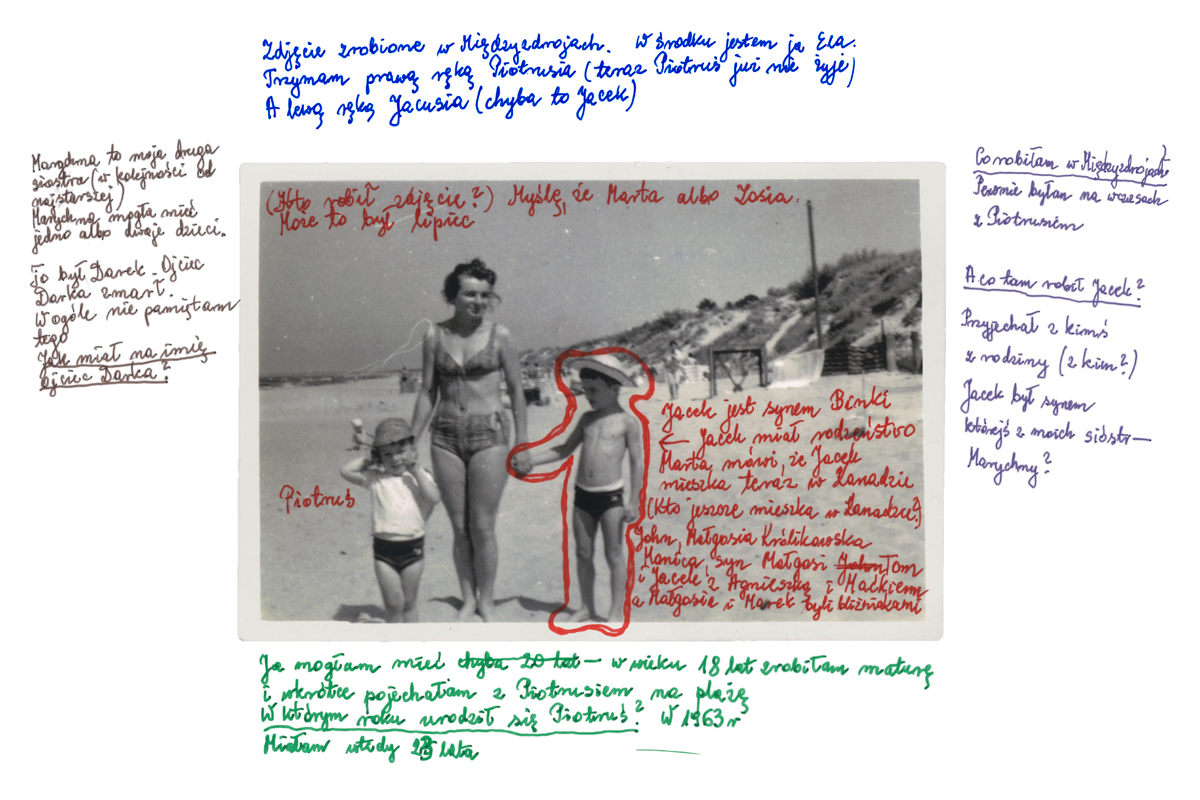 Zdjęcie zrobione w Międzyzdrojach. W środku jestem ja Ela.
Trzymam prawą ręką Piotrusia (teraz Piotruś już nie żyje)
A lewą ręką Jacusia (chyba to Jacek)
Marychna to moja druga
siostra (w kolejności od
najstarszej)
Marychna mogła mieć
jedno albo dwoje dzieci.
To był Darek. Ojciec
Darka zmarł.
W ogóle nie pamiętam
tego
Jak miał na imię
ojciec Darka?
(Kto robił zdjęcie?) Myślę, że Marta albo Zosia.
Może to był lipiec
Piotruś
Jacek jest synem Binki
← Jacek miał rodzeństwo
Marta mówi, że Jacek
mieszka teraz w Kanadzie
(Kto jeszcze mieszka w Kanadzie?)
John, Małgosia Królikowska
Monica, syn Małgosi John Tom
i Jacek z Agnieszką i Maćkiem
a Małgosia i Marek byli bliźniakami
Co robiłam w Międzyzdrojach?
Pewnie byłam na wczasach
z Piotrusiem
A co tam robił Jacek?
Przyjechał z kimś
z rodziny (z kim?)
Jacek był synem
którejś z moich sióstr —
Marychny?
Ja mogłam mieć chyba 20 lat — w wieku 18 lat zrobiłam maturę
i wkrótce pojechałam z Piotrusiem na plażę
W którym roku urodził się Piotruś? W 1963 r
Miałam wtedy 23 lata